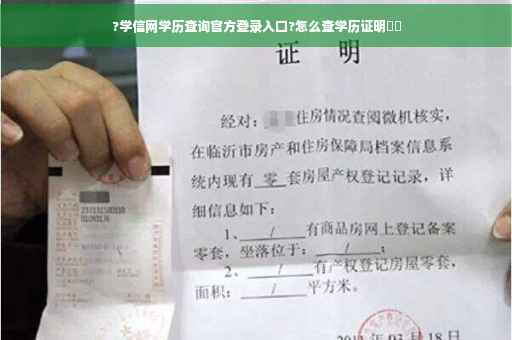 ?学信网学历查询官方登录入口?怎么查学历证明
证 明
经对：住房情况查阅微机核实，
在临沂市房产和住房保障局档案信息系
统内现有 零 套房屋产权登记记录，详
细信息如下：
1、 / 有商品房网上登记备案
零套，坐落位于： / ；
2、 / 有产权登记房屋零套，
面积： / 平方米。
03月18日